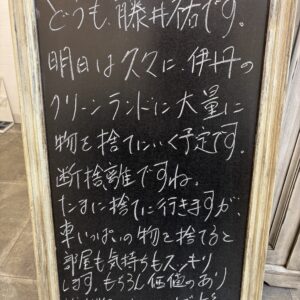 どうも、藤井祐です。
明日は久々に、伊丹の
クリーンランドに大量に
物を捨てにいく予定です。
断捨離ですね。
たまに捨てに行きますが、
車いっぱいの物を捨てると
部屋も気持ちもスッキリ
します。もちろん価値のあり